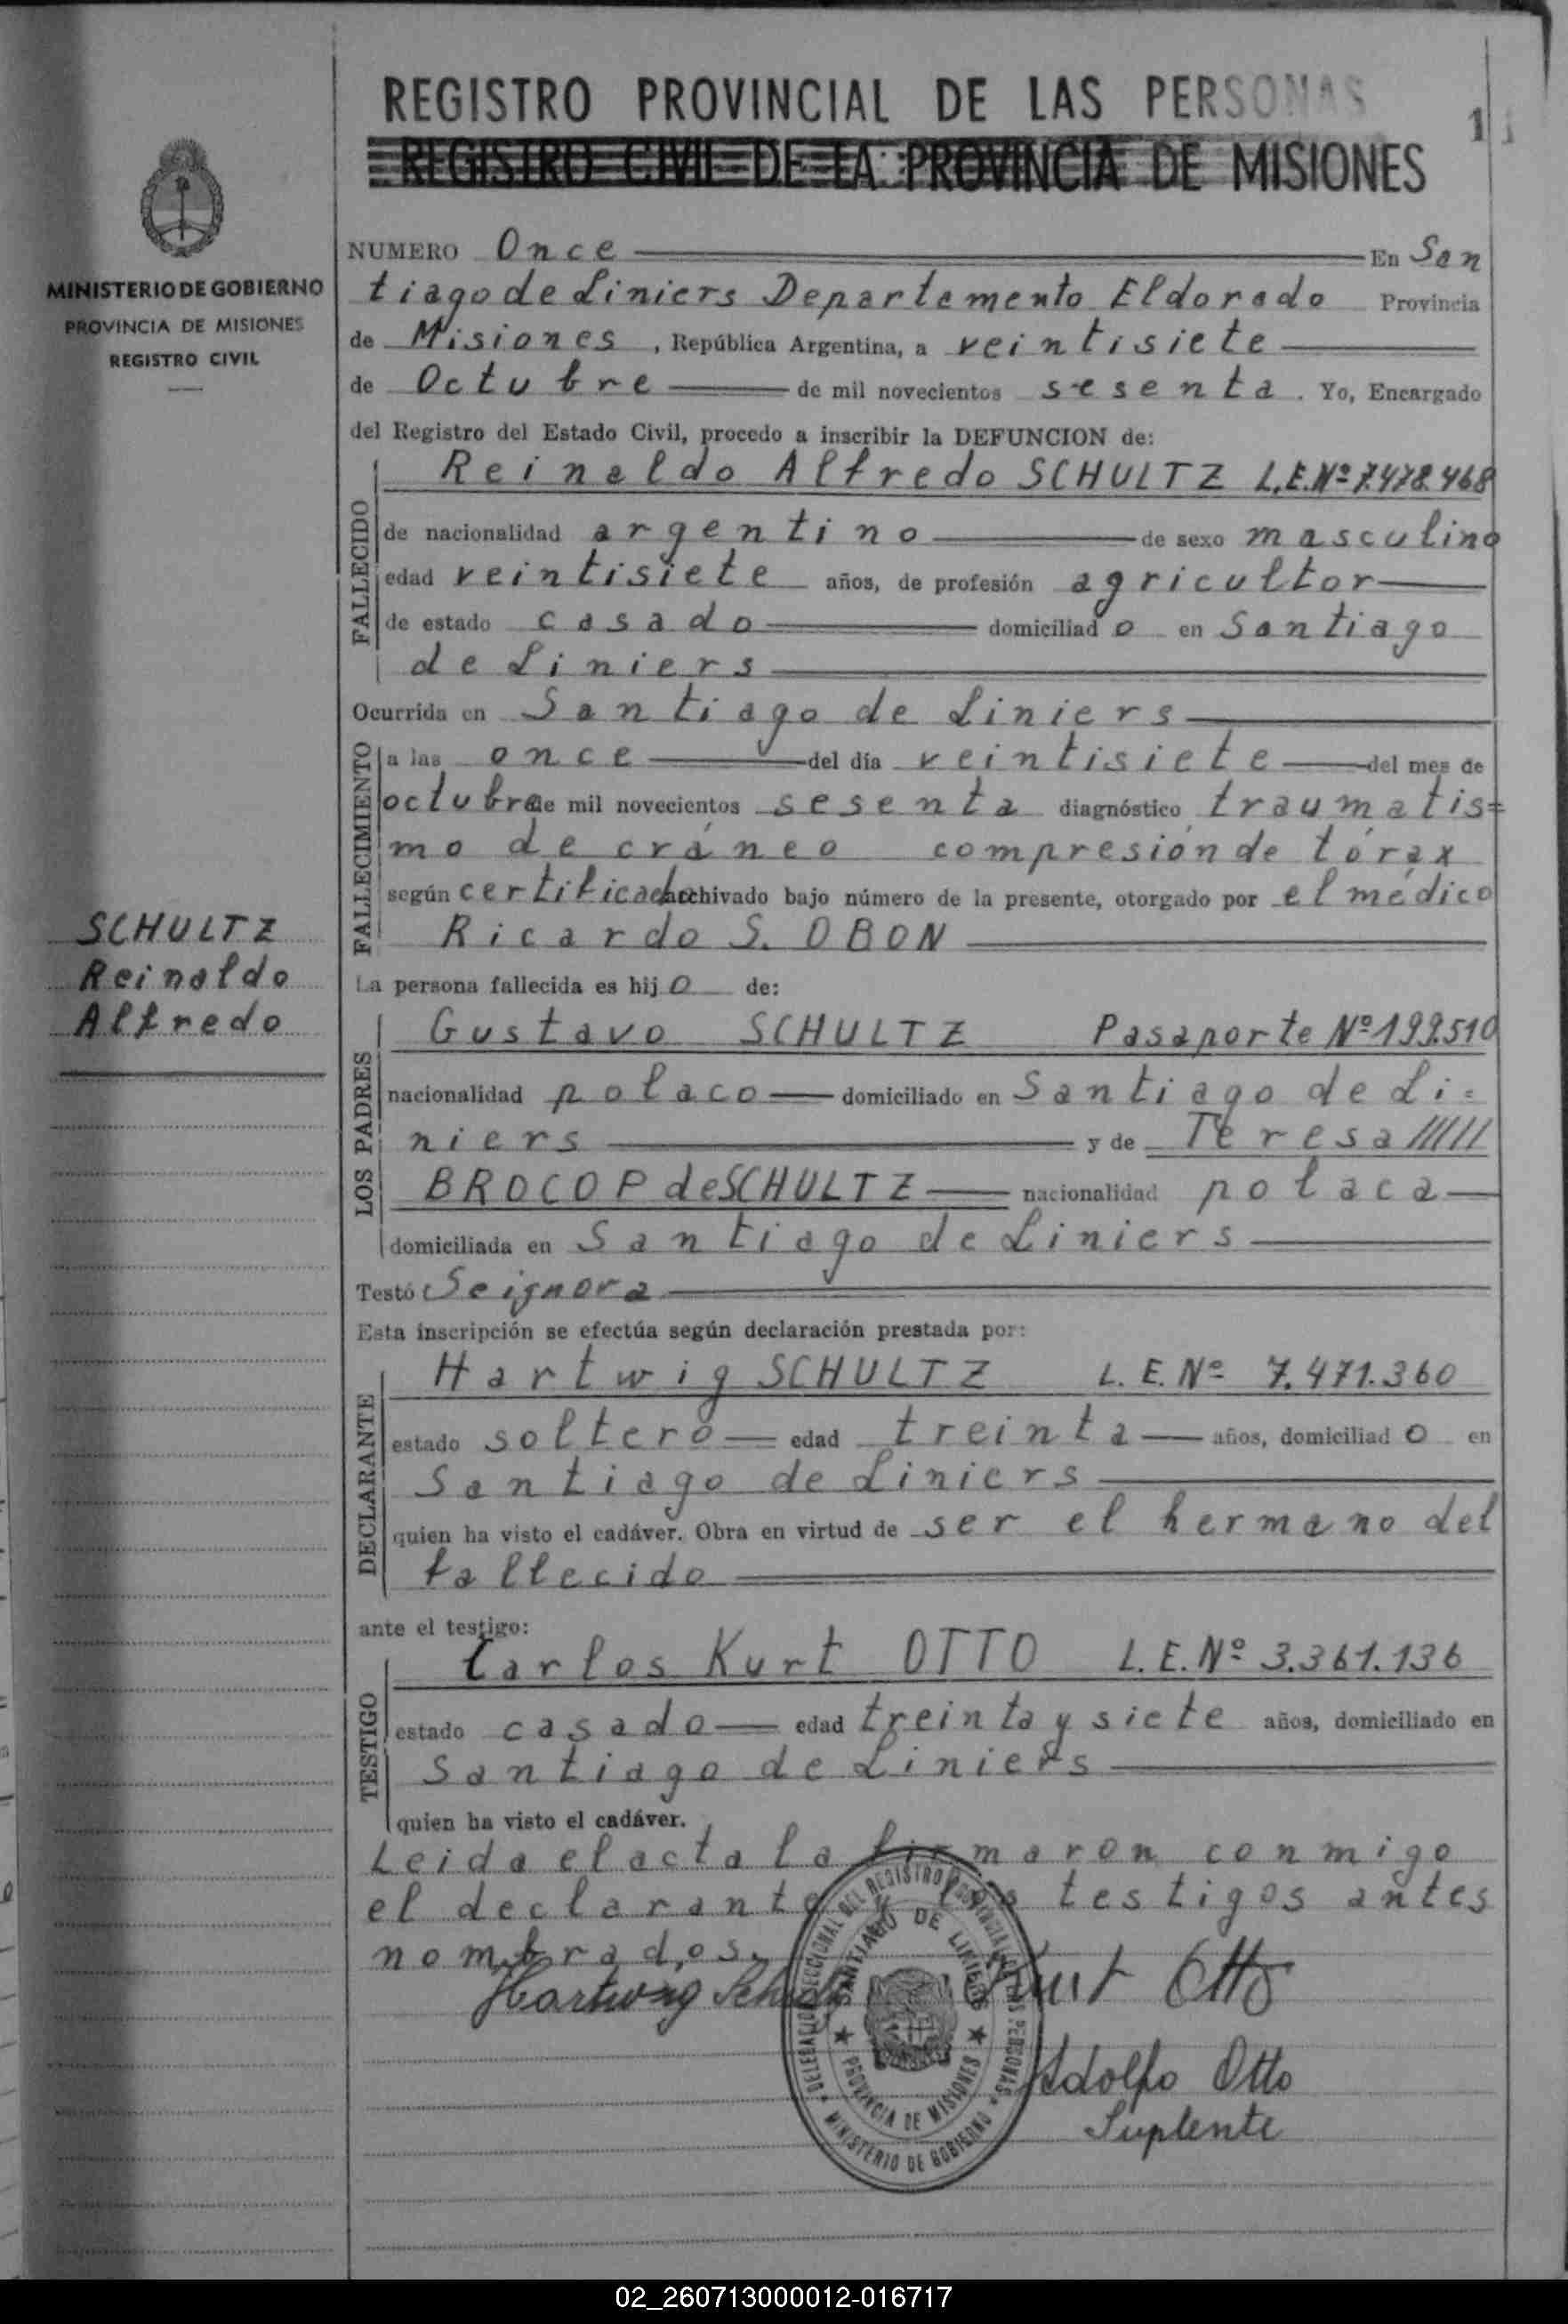 REGISTRO PROVINCIAL DE LAS PERSONAS
REGISTRO CIVIL DE LA PROVINCIA DE MISIONES
MINISTERIO DE GOBIERNO
PROVINCIA DE MISIONES
REGISTRO CIVIL
NUMERO Once En San
tiago de Liniers Departamento Eldorado Provincia
de Misiones, República Argentina, a veintisiete
de Octubre de mil novecientos sesenta. Yo, Encargado
del Registro del Estado Civil, procedo a inscribir la DEFUNCION de:
FALLECIDO
Reinaldo Alfredo SCHULTZ L.E.Nº 7.478.468
de nacionalidad argentino de sexo masculino
edad veintisiete años, de profesión agricultor
de estado casado domiciliado en Santiago
de Liniers
Ocurrida en Santiago de Liniers
FALLECIMIENTO
a las once del día veintisiete del mes de
octubre de mil novecientos sesenta diagnóstico traumatis=
mo de cráneo compresión de tórax
según certificado archivado bajo número de la presente, otorgado por el médico
Ricardo S. OBON
SCHULTZ
Reinaldo
Alfredo
La persona fallecida es hijo de:
LOS PADRES
Gustavo SCHULTZ Pasaporte Nº 199.510
nacionalidad polaco domiciliado en Santiago de Li=
niers y de Teresa //////
BROCOP de SCHULTZ nacionalidad polaca
domiciliada en Santiago de Liniers
Testó Se ignora
Esta inscripción se efectúa según declaración prestada por:
DECLARANTE
Hartwig SCHULTZ L. E. Nº 7.471.360
estado soltero edad treinta años, domiciliado en
Santiago de Liniers
quien ha visto el cadáver. Obra en virtud de ser el hermano del
fallecido
ante el testigo:
TESTIGO
Carlos Kurt OTTO L.E.Nº 3.361.136
estado casado edad treinta y siete años, domiciliado en
Santiago de Liniers
quien ha visto el cadáver.
Leida el acta la firmaron conmigo
el declarante y los testigos antes
nombrados.
Hartwig Schultz Kurt Otto
DELEGACION SECCIONAL DEL REGISTRO PROVINCIAL DE LAS PERSONAS
SANTIAGO DE LINIERS
PROVINCIA DE MISIONES
MINISTERIO DE GOBIERNO
Adolfo Otto
Suplente
02_260713000012-016717